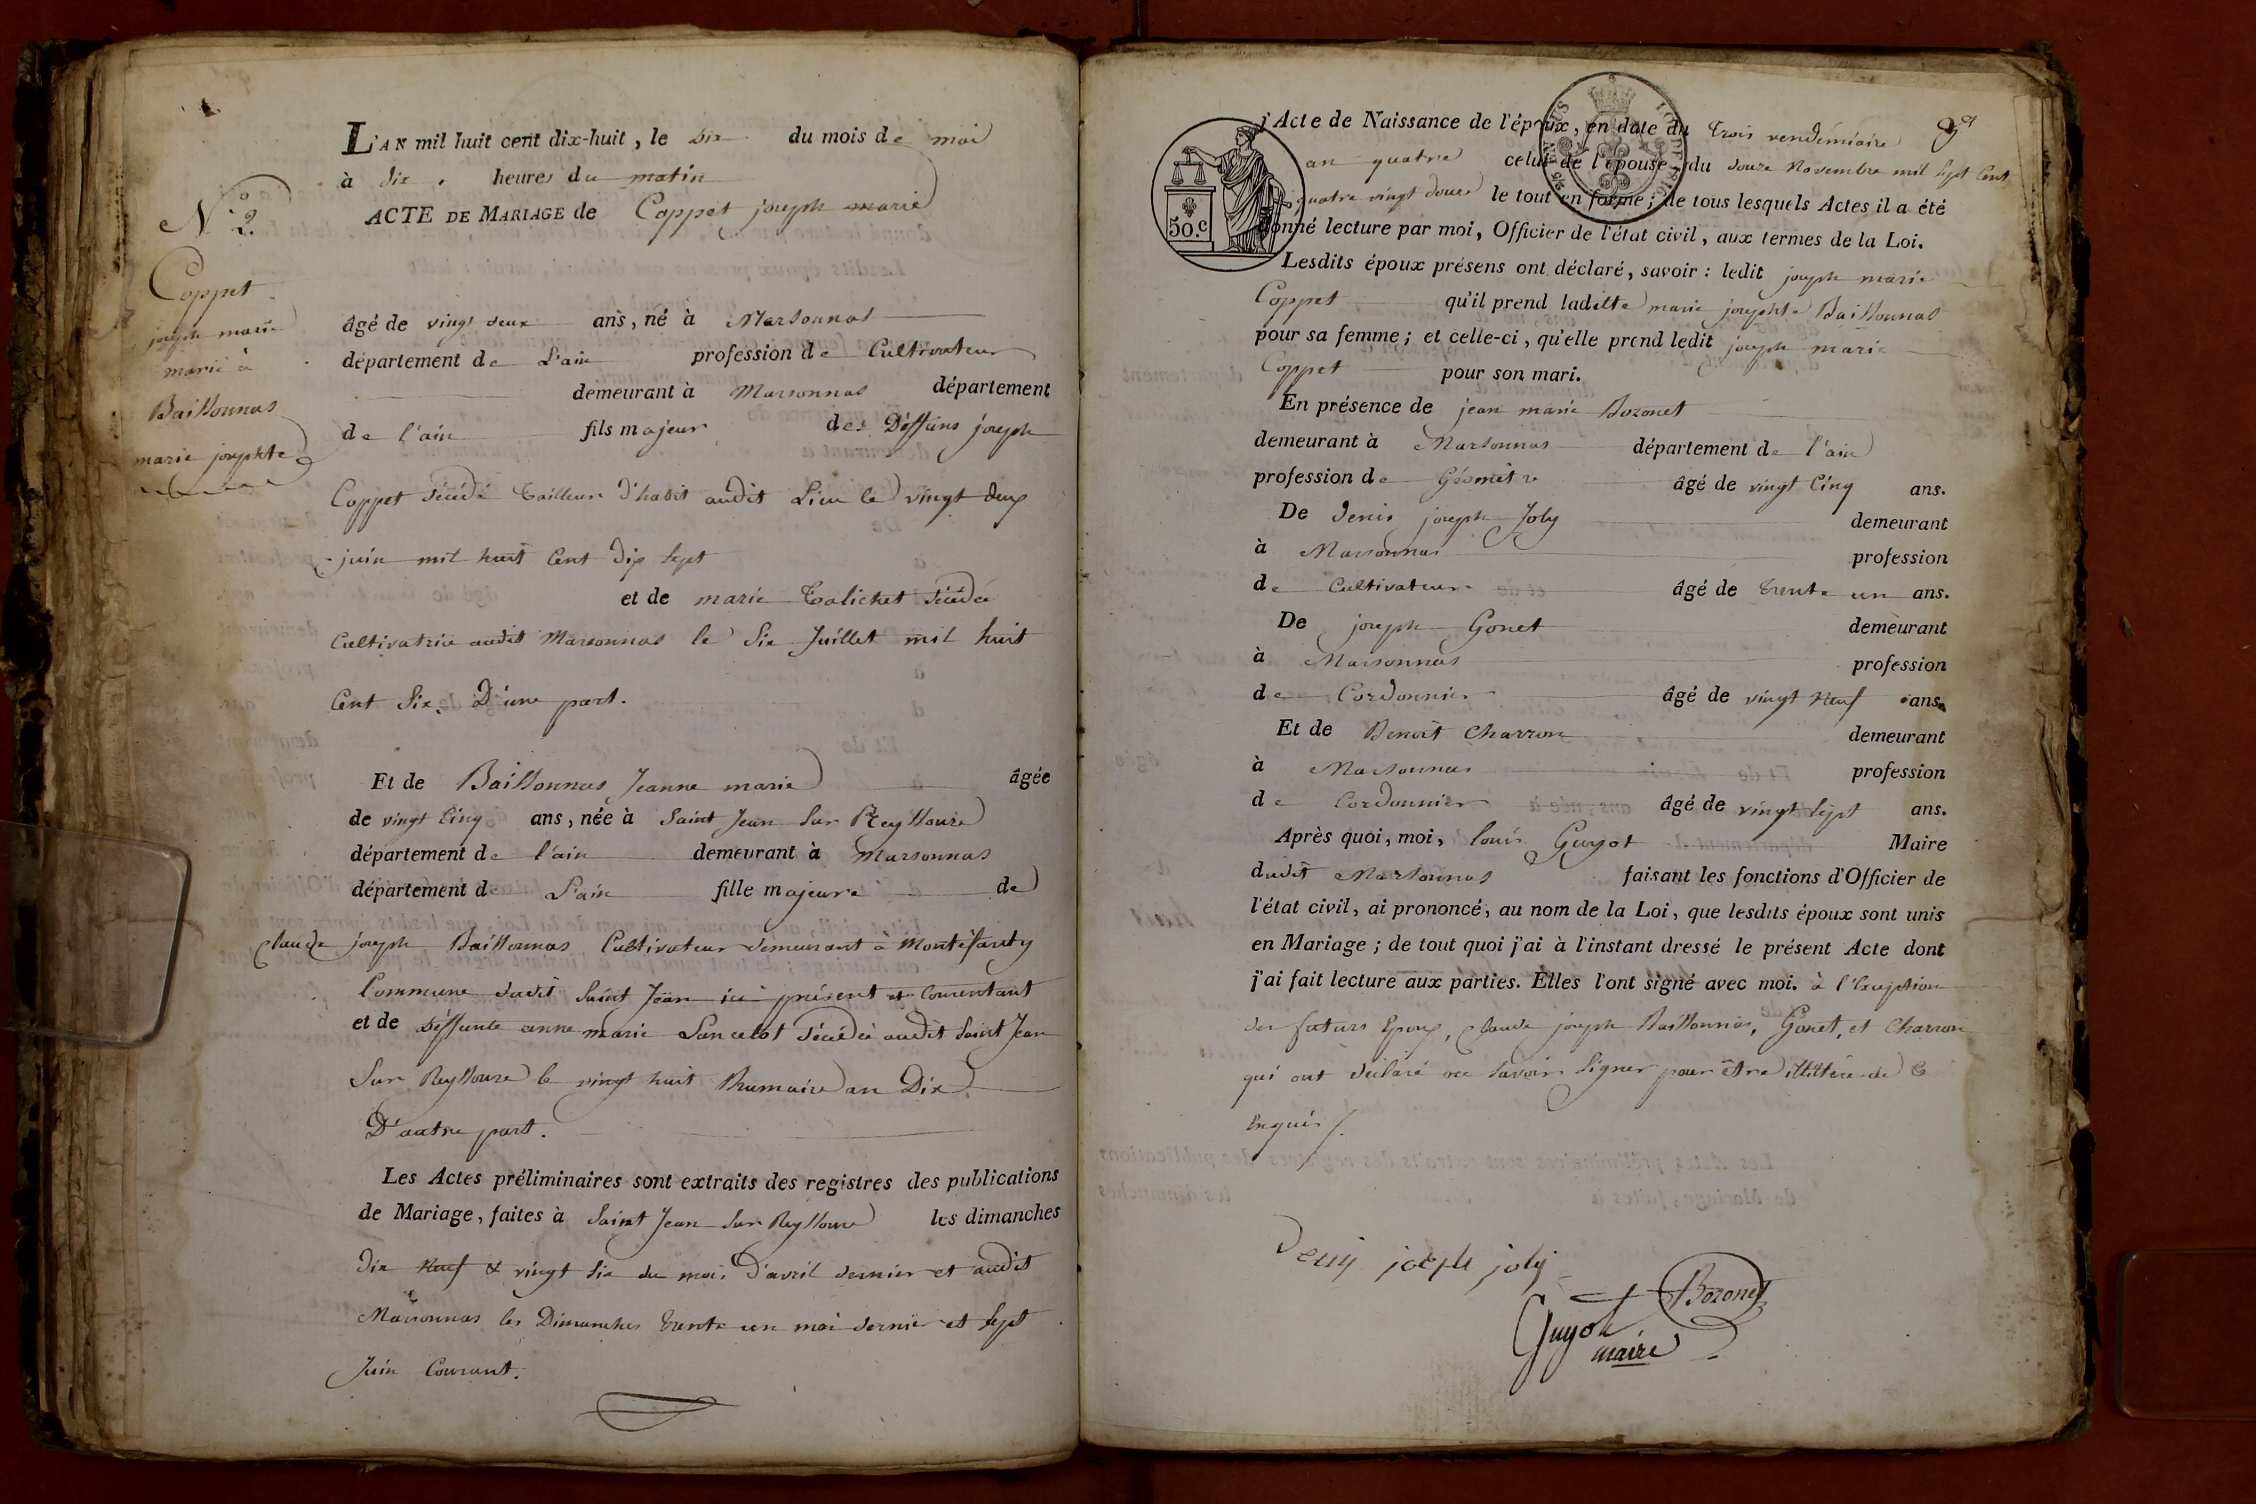 L'AN mil huit cent dix-huit, le dix du mois de mai
à dix heures du matin
ACTE DE MARIAGE de Coppet joseph marie
N° 2.
Coppet
joseph marie
marié à
Baissonnas
marie josephte
âgé de vingt deux ans, né à Marsonnas
département de L'ain profession de Cultivateur
demeurant à Marsonnas département
de l'ain fils majeur des Deffuns joseph
Coppet décédé Tailleur d'habit audit Lieu le vingt deux
juin mil huit Cent dix sept
et de marie Talichet décédée
Cultivatrice audit Marsonnas le Six Juillet mil huit
Cent Six. D'une part.
Et de Baissonnas Jeanne marie âgée
de vingt Cinq ans, née à Saint Jean Sur Reyssouze
département de l'ain demeurant à Marsonnas
département de L'ain fille majeure de
Claude joseph Baissonnas Cultivateur demeurant à Montéfanty
Commune dudit Saint Jean ici présent et Consentant
et de Deffunte anne marie Lancelot décédée audit Saint Jean
Sur Reyssouze le vingt huit Brumaire an Dix.
D'autre part.
Les Actes préliminaires sont extraits des registres des publications
de Mariage, faites à Saint Jean Sur Reyssouze les dimanches
dix neuf & vingt Six du mois d'avril dernier et audit
Marsonnas les Dimanches trente un mai dernier et Sept
Juin Courant.
l'Acte de Naissance de l'époux, en date du trois vendémiaire
an quatre celui de l'épouse du douze Novembre mil Sept Cent
quatre vingt douze le tout en forme; de tous lesquels Actes il a été
donné lecture par moi, Officier de l'état civil, aux termes de la Loi.
50.C
Lesdits époux présens ont déclaré, savoir: ledit joseph marie
Coppet qu'il prend ladite marie josephte Baissonnas
pour sa femme; et celle-ci, qu'elle prend ledit joseph marie
Coppet pour son mari.
En présence de jean marie Bozonet
demeurant à Marsonnas département de l'ain
profession de Géomètre âgé de vingt Cinq ans.
De denis joseph Joly demeurant
à Marsonnas profession
de Cultivateur âgé de trente un ans.
De joseph Gonet demeurant
à Marsonnas profession
de Cordonnier âgé de vingt Neuf ans.
Et de Benoît Charron demeurant
à Marsonnas profession
de Cordonnier âgé de vingt Sept ans.
Après quoi, moi, louis Guyot Maire
dudit Marsonnas faisant les fonctions d'Officier de
l'état civil, ai prononcé, au nom de la Loi, que lesdits époux sont unis
en Mariage; de tout quoi j'ai à l'instant dressé le présent Acte dont
j'ai fait lecture aux parties. Elles l'ont signé avec moi. à l'Exception
des futurs Epoux, Claude joseph Baissonnas, Gonet, et Charron
qui ont déclaré ne Savoir Signer pour être illittéré de Ce
Enquis
Deny joseph joly
Bozonet
Guyot
maire